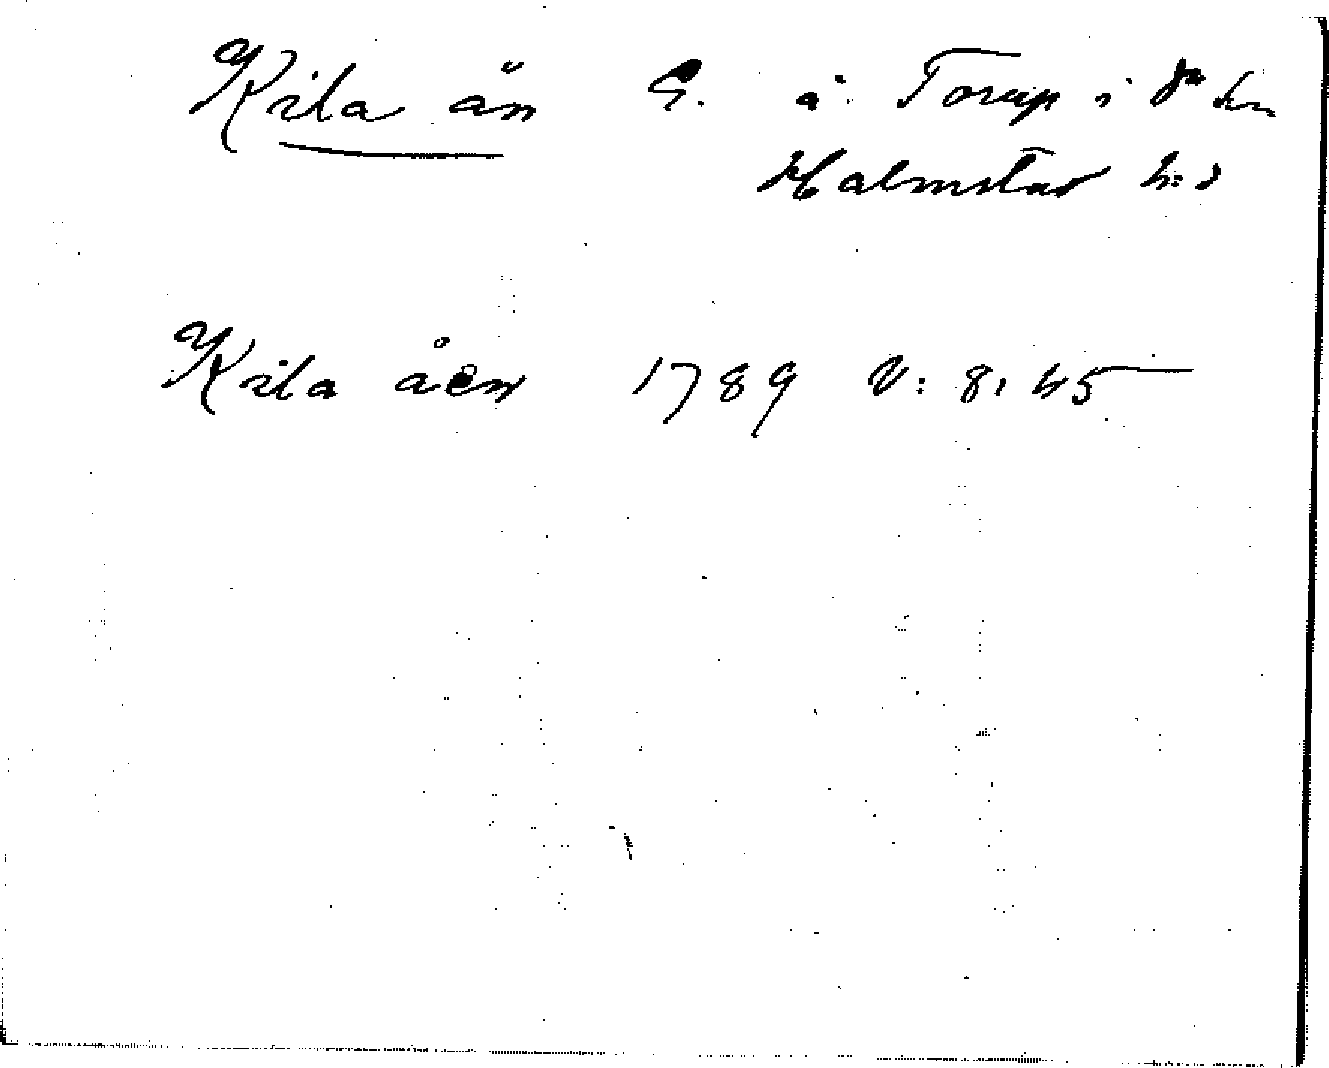 Kila ån G. å. Torup i d:o sn
Halmstad h:d
Kila åen 1789 V: 8: h5